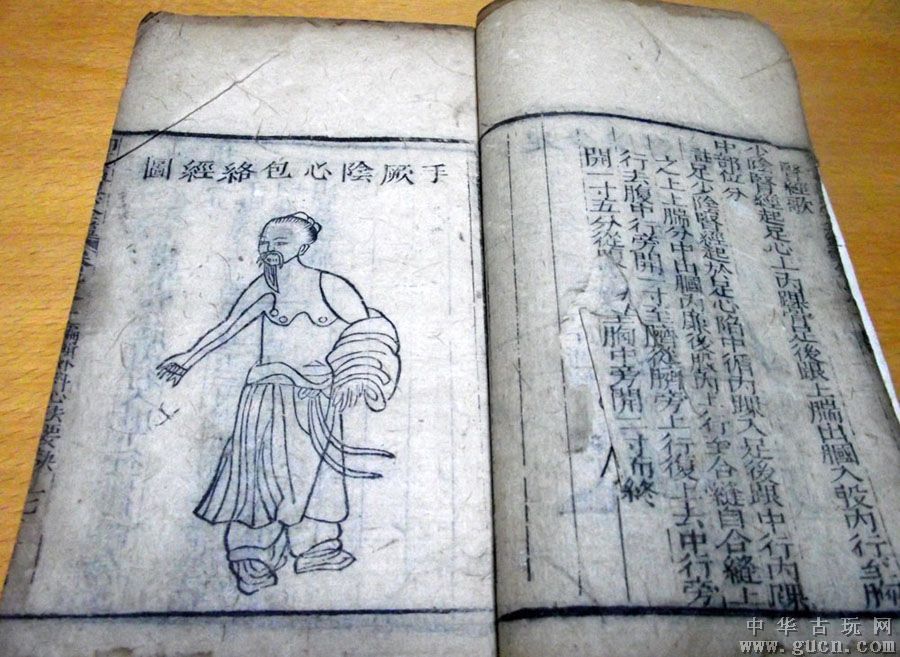 腎經歌
少陰腎經起足心上內踝骨足後跟上腨出膕入股內行至胸
中部位分
註足少陰腎經起於足心陷中循內踝入足後跟中行內踝
之上上腨分中出膕內廉後股內上行至合縫自合縫上
行去腹中行旁開一寸至臍從臍旁上行復上去中行旁
開一寸五分從 胸中旁開二寸而終
手厥陰心包絡經圖
外科心法要訣
中华古玩网
www.gucn.com